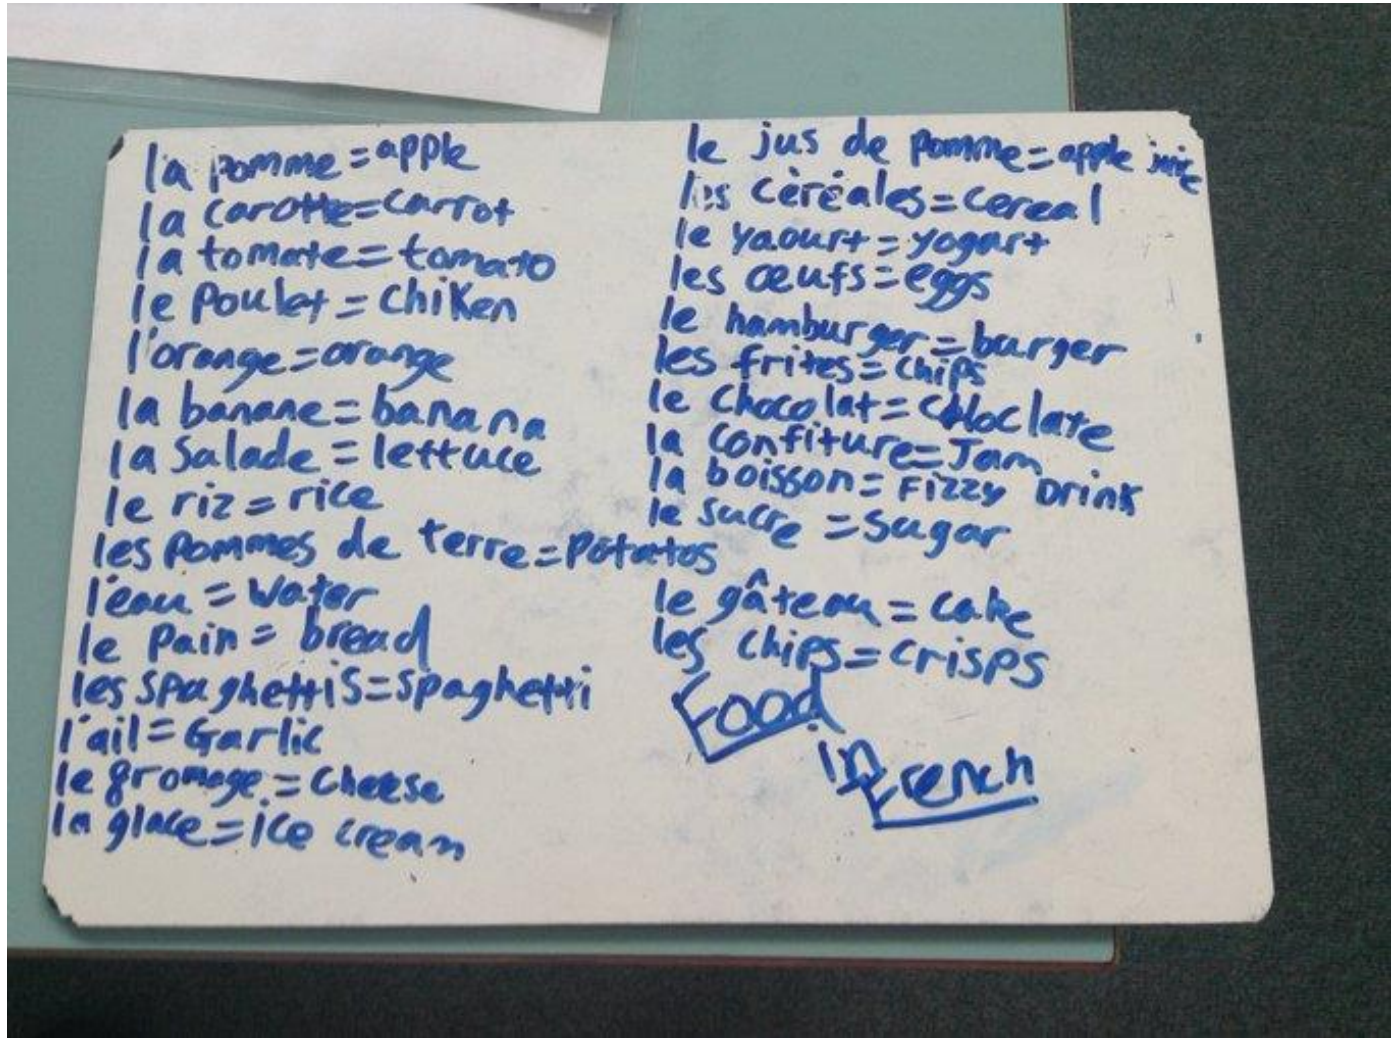 la pomme = apple
la carotte = carrot
la tomate = tomato
le poulet = chiken
l'orange = orange
la banane = banana
la salade = lettuce
le riz = rice
les pommes de terre = potatos
l'eau = water
le pain = bread
les spaghettis = spaghetti
l'ail = Garlic
le fromage = cheese
la glace = ice cream
le jus de pomme = apple juice
les cèréales = cereal
le yaourt = yogurt
les œufs = eggs
le hamburger = burger
les frites = chips
le chocolat = choclate
la confiture = Jam
la boisson = Fizzy Drink
le sucre = sugar
le gâteau = cake
les chips = crisps
Food
in French